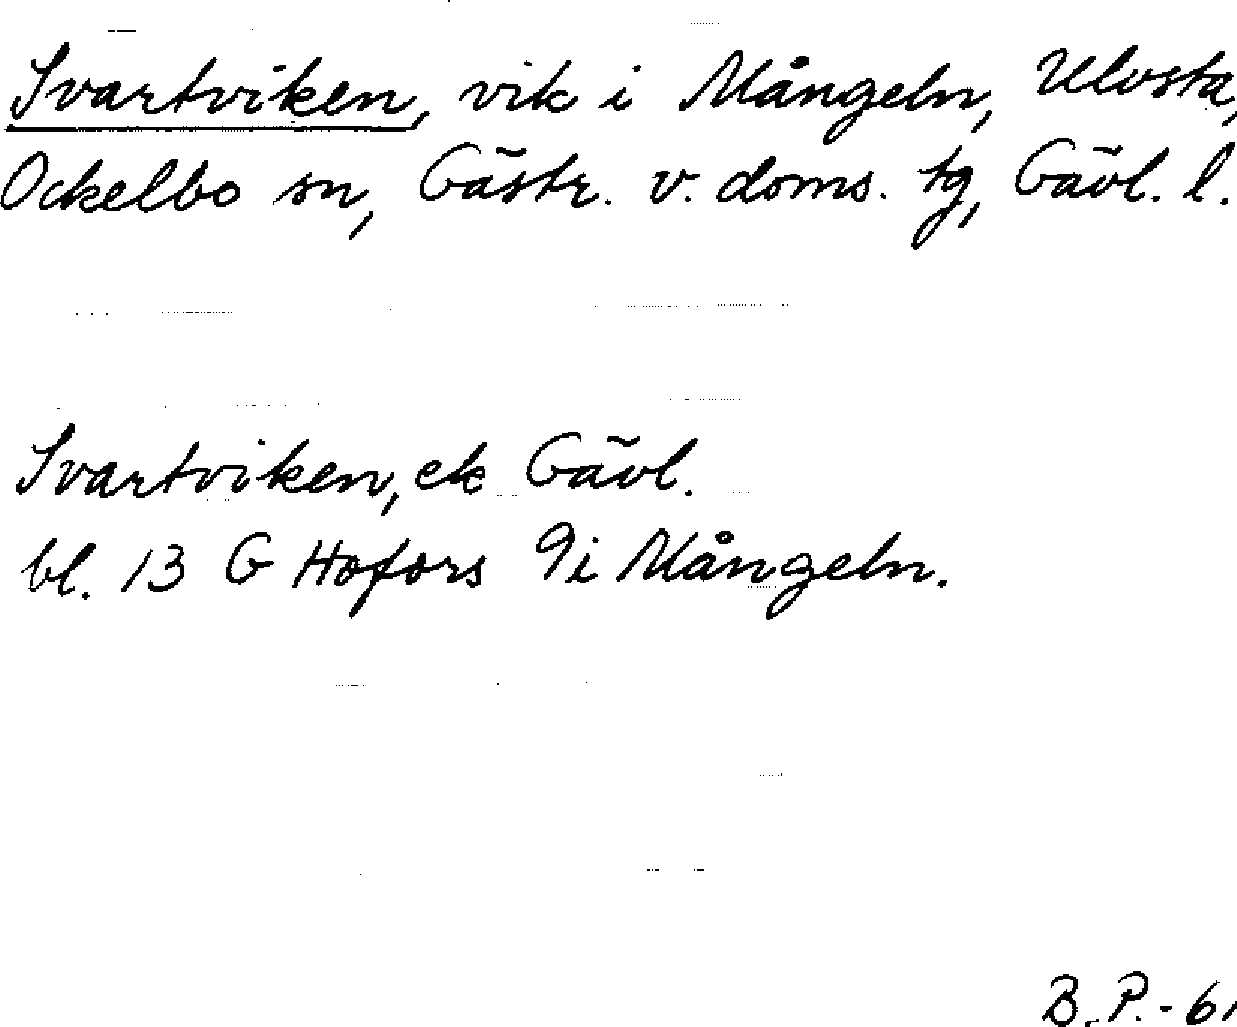 Svartviken, vik i Mångeln, Ulvsta,
Ockelbo sn, Gästr. v. doms. tg, Gävl. l.
Svartviken, ek Gävl.
bl. 13 G Hofors 9i Mångeln.
B. P. - 61